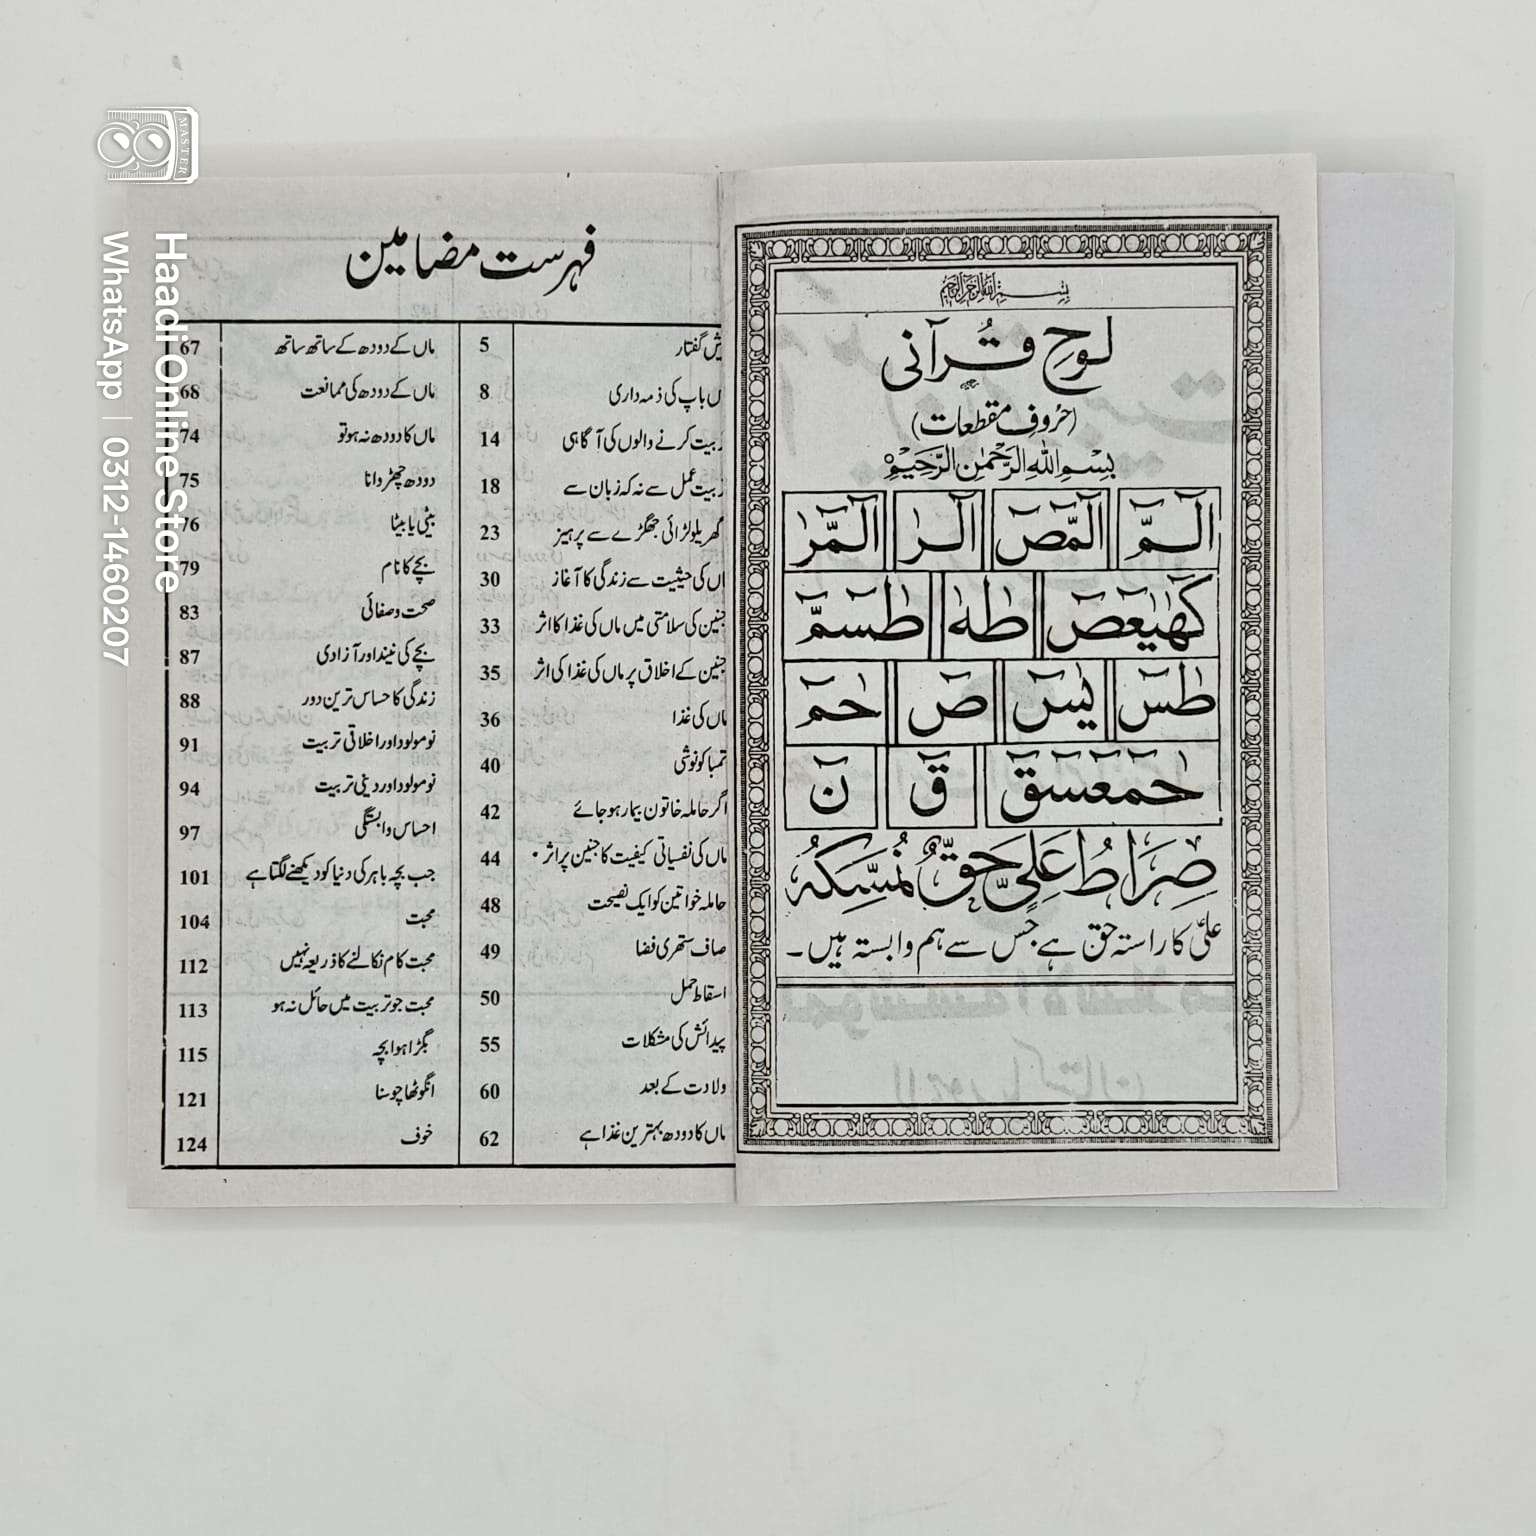 بِسْمِ اللّٰهِ الرَّحْمٰنِ الرَّحِيْمِ
لوحِ قُرآنی
(حُروفِ مقطعات)
بِسْمِ اللّٰهِ الرَّحْمٰنِ الرَّحِيْمِ
الٓـمّٓ الٓمّٓصٓ الٓـرٰ الٓـمّٓرٰ
كٓهٰيٰعٓصٓ طٰهٰ طٰسٓمّٓ
طٰسٓ يٰسٓ صٓ حٰمٓ
حٰمٓعٓسٓقٓ قٓ نٓ
صِرَاطُ عَلِيٍّ حَقٌّ نُمْسِكُهُ
علیؑ کا راستہ حق ہے جس سے ہم وابستہ ہیں۔
فہرست مضامین
یش گفتار 5
ں باپ کی ذمہ داری 8
ربیت کرنے والوں کی آگاہی 14
ربیت عمل سے نہ کہ زبان سے 18
گھریلو لڑائی جھگڑے سے پرہیز 23
اں کی حیثیت سے زندگی کا آغاز 30
جنین کی سلامتی میں ماں کی غذا کا اثر 33
جنین کے اخلاق پر ماں کی غذا کی اثر 35
ماں کی غذا 36
تمباکو نوشی 40
اگر حاملہ خاتون بیمار ہو جائے 42
ماں کی نفسیاتی کیفیت کا جنین پر اثر 44
حاملہ خواتین کو ایک نصیحت 48
صاف ستھری فضا 49
اسقاط حمل 50
پیدائش کی مشکلات 55
ولادت کے بعد 60
ماں کا دودھ بہترین غذا ہے 62
ماں کے دودھ کے ساتھ ساتھ 67
ماں کے دودھ کی ممانعت 68
ماں کا دودھ نہ ہو تو 74
دودھ چھڑوانا 75
بیٹی یا بیٹا 76
بچے کا نام 79
صحت و صفائی 83
بچے کی نیند اور آزادی 87
زندگی کا حساس ترین دور 88
نومولود اور اخلاقی تربیت 91
نومولود اور دینی تربیت 94
احساس وابستگی 97
جب بچہ باہر کی دنیا کو دیکھنے لگتا ہے 101
محبت 104
محبت کام نکالنے کا ذریعہ نہیں 112
محبت جو تربیت میں حائل نہ ہو 113
بگڑا ہوا بچہ 115
انگوٹھا چوسنا 121
خوف 124
MASTER
Haadi Online Store
WhatsApp | 0312-1460207